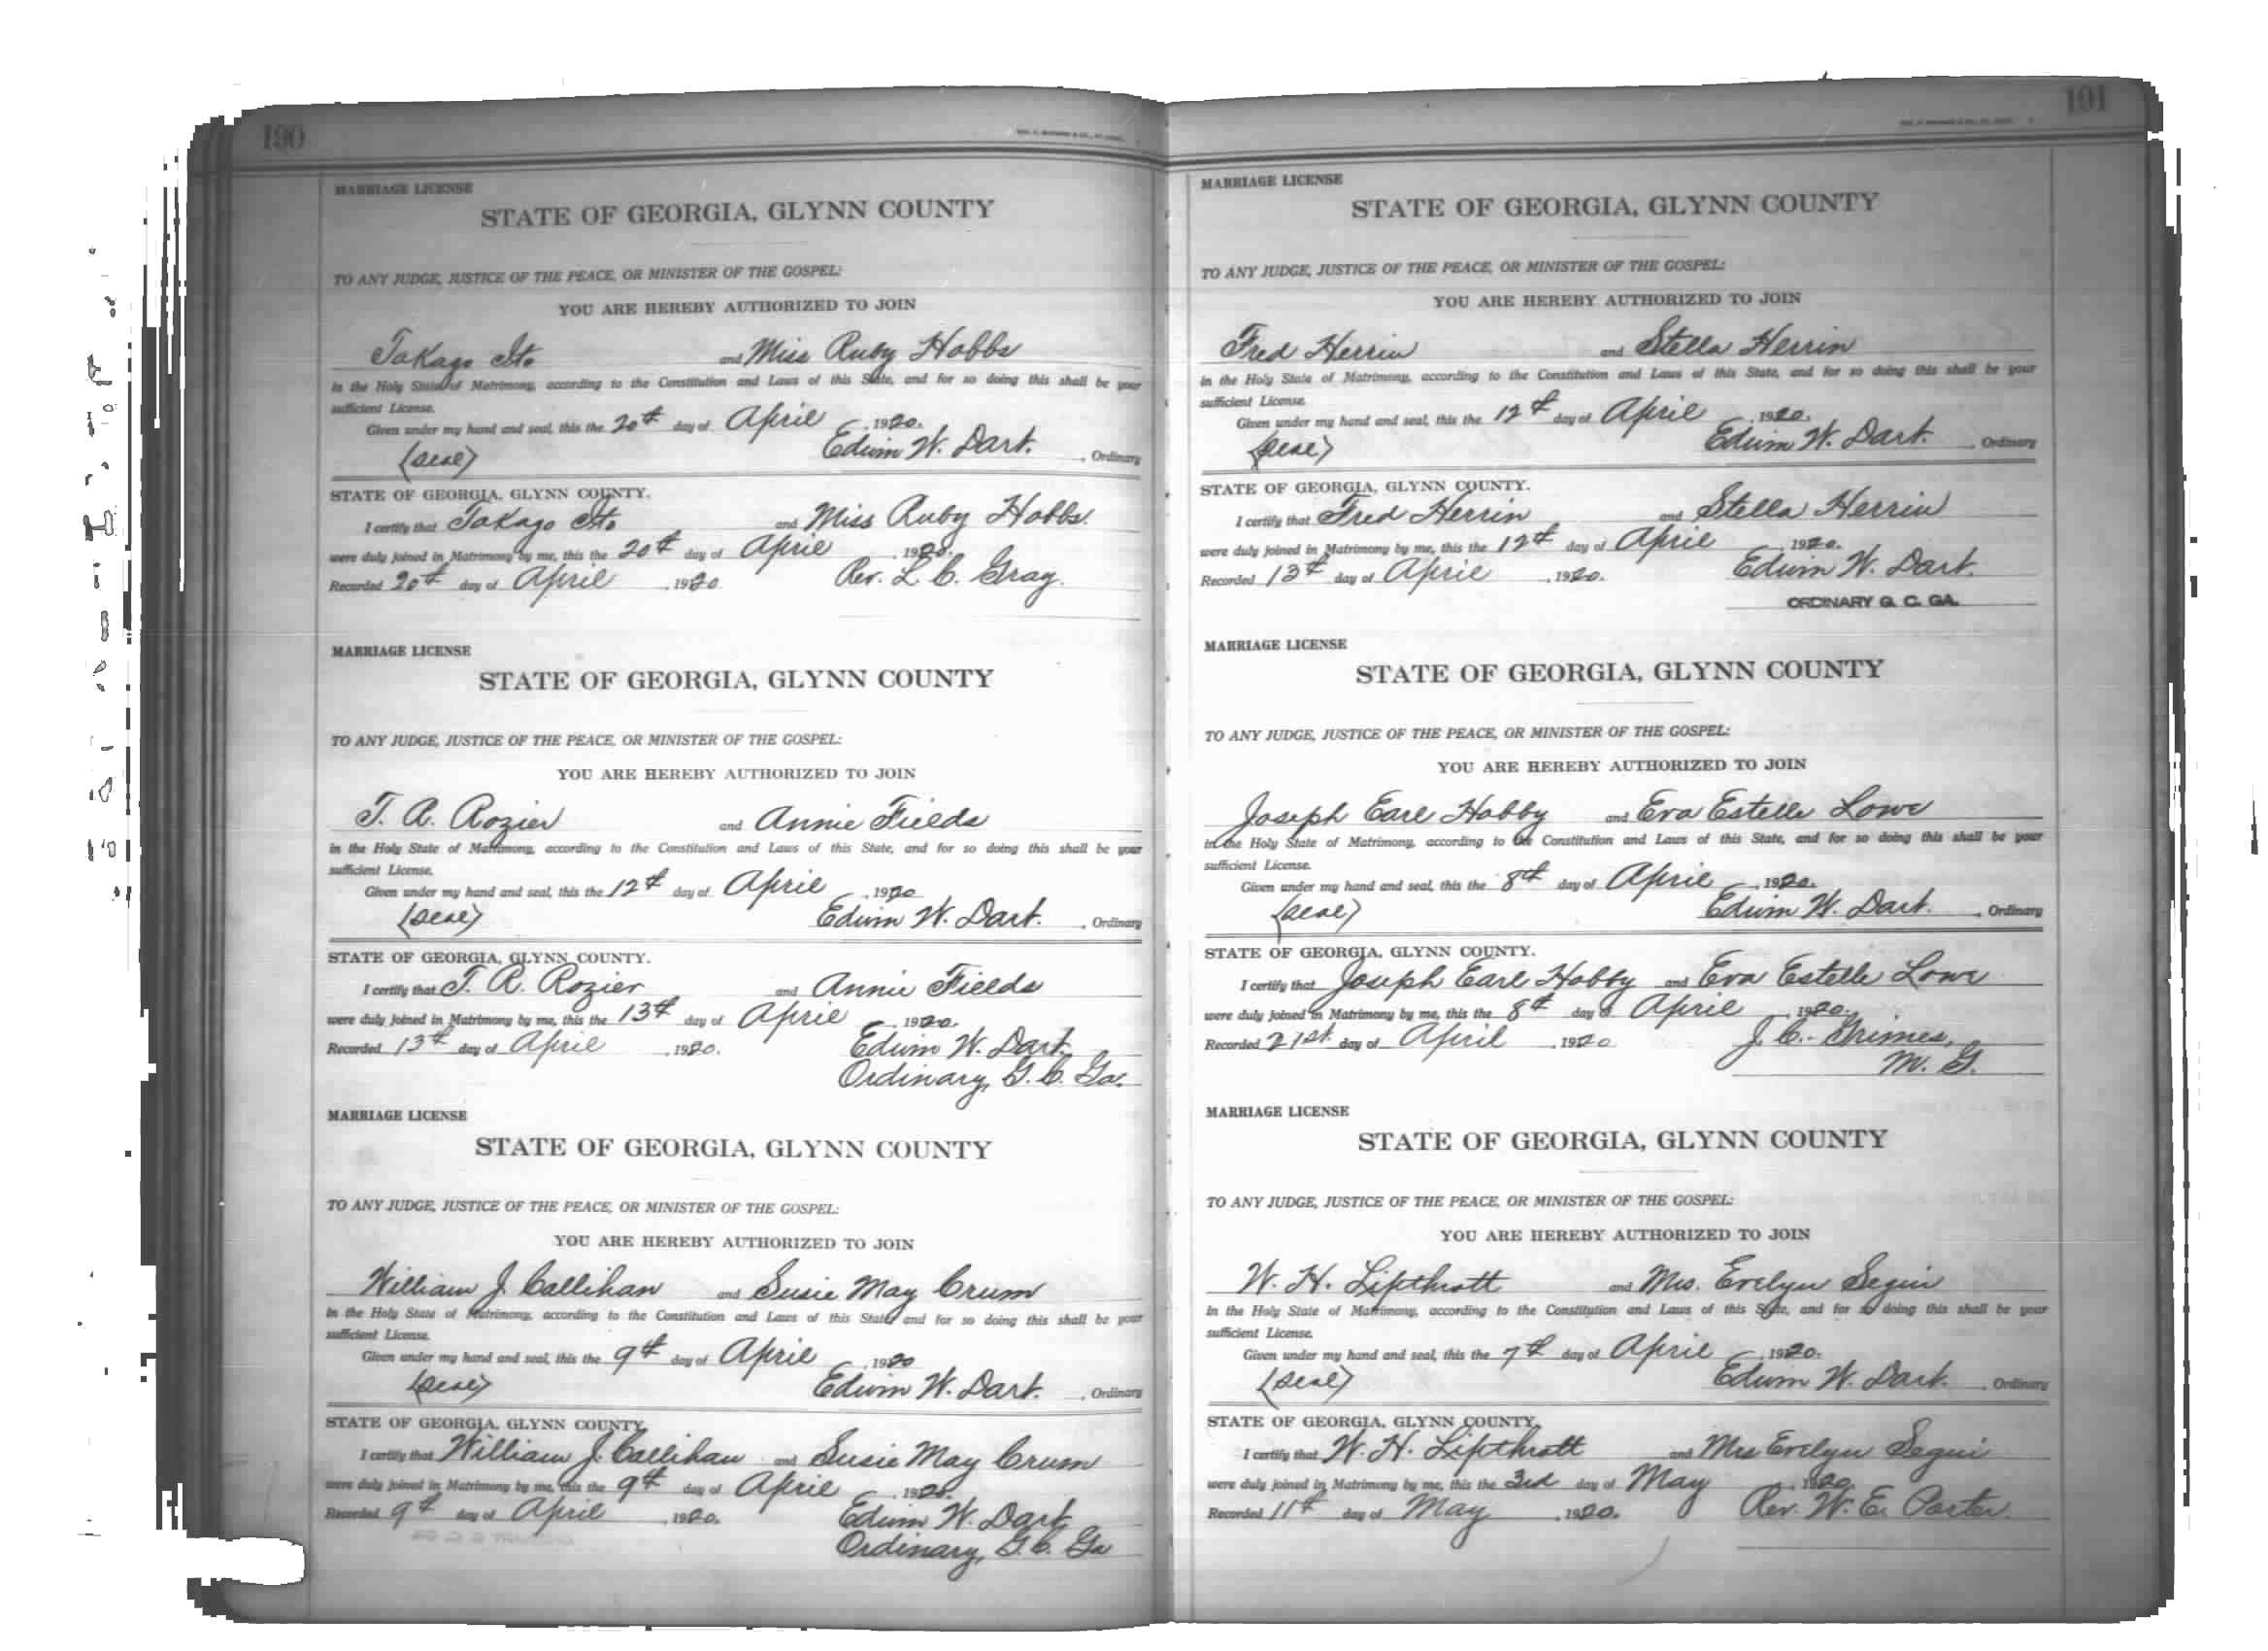 190
MARRIAGE LICENSE
STATE OF GEORGIA, GLYNN COUNTY
TO ANY JUDGE, JUSTICE OF THE PEACE, OR MINISTER OF THE GOSPEL:
YOU ARE HEREBY AUTHORIZED TO JOIN
Takago Ito and Miss Ruby Hobbs
in the Holy State of Matrimony, according to the Constitution and Laws of this State, and for so doing this shall be your
sufficient License.
Given under my hand and seal, this the 20th day of April, 1920.
(Seal) Edwin W. Dart. , Ordinary
STATE OF GEORGIA, GLYNN COUNTY.
I certify that Takago Ito and Miss Ruby Hobbs.
were duly joined in Matrimony by me, this the 20th day of April, 1920.
Recorded 20th day of April, 1920 Rev. L. C. Gray.
MARRIAGE LICENSE
STATE OF GEORGIA, GLYNN COUNTY
TO ANY JUDGE, JUSTICE OF THE PEACE, OR MINISTER OF THE GOSPEL:
YOU ARE HEREBY AUTHORIZED TO JOIN
T. R. Rozier and Annie Fields
in the Holy State of Matrimony, according to the Constitution and Laws of this State, and for so doing this shall be your
sufficient License.
Given under my hand and seal, this the 12th day of April, 1920
(Seal) Edwin W. Dart. , Ordinary
STATE OF GEORGIA, GLYNN COUNTY.
I certify that T. R. Rozier and Annie Fields
were duly joined in Matrimony by me, this the 13th day of April, 1920.
Recorded 13th day of April, 1920. Edwin W. Dart.
Ordinary, G. C. Ga.
MARRIAGE LICENSE
STATE OF GEORGIA, GLYNN COUNTY
TO ANY JUDGE, JUSTICE OF THE PEACE, OR MINISTER OF THE GOSPEL:
YOU ARE HEREBY AUTHORIZED TO JOIN
William J. Callihan and Susie May Crum
in the Holy State of Matrimony, according to the Constitution and Laws of this State, and for so doing this shall be your
sufficient License.
Given under my hand and seal, this the 9th day of April, 1920
(Seal) Edwin W. Dart. , Ordinary
STATE OF GEORGIA, GLYNN COUNTY.
I certify that William J. Callihan and Susie May Crum
were duly joined in Matrimony by me, this the 9th day of April, 1920.
Recorded 9th day of April, 1920. Edwin W. Dart
Ordinary, G. C. Ga
191
MARRIAGE LICENSE
STATE OF GEORGIA, GLYNN COUNTY
TO ANY JUDGE, JUSTICE OF THE PEACE, OR MINISTER OF THE GOSPEL:
YOU ARE HEREBY AUTHORIZED TO JOIN
Fred Herrin and Stella Herrin
in the Holy State of Matrimony, according to the Constitution and Laws of this State, and for so doing this shall be your
sufficient License.
Given under my hand and seal, this the 12th day of April, 1920.
(Seal) Edwin W. Dart. , Ordinary
STATE OF GEORGIA, GLYNN COUNTY.
I certify that Fred Herrin and Stella Herrin
were duly joined in Matrimony by me, this the 12th day of April, 1920.
Recorded 13th day of April, 1920. Edwin W. Dart.
ORDINARY G. C. GA.
MARRIAGE LICENSE
STATE OF GEORGIA, GLYNN COUNTY
TO ANY JUDGE, JUSTICE OF THE PEACE, OR MINISTER OF THE GOSPEL:
YOU ARE HEREBY AUTHORIZED TO JOIN
Joseph Earl Hobby and Eva Estelle Lowe
in the Holy State of Matrimony, according to the Constitution and Laws of this State, and for so doing this shall be your
sufficient License.
Given under my hand and seal, this the 8th day of April, 1920.
(Seal) Edwin W. Dart. , Ordinary
STATE OF GEORGIA, GLYNN COUNTY.
I certify that Joseph Earl Hobby and Eva Estelle Lowe
were duly joined in Matrimony by me, this the 8th day of April, 1920.
Recorded 21st. day of April, 1920 J. C. Grimes,
M. G.
MARRIAGE LICENSE
STATE OF GEORGIA, GLYNN COUNTY
TO ANY JUDGE, JUSTICE OF THE PEACE, OR MINISTER OF THE GOSPEL:
YOU ARE HEREBY AUTHORIZED TO JOIN
W. H. Lipthratt and Mrs. Evelyn Segui
in the Holy State of Matrimony, according to the Constitution and Laws of this State, and for so doing this shall be your
sufficient License.
Given under my hand and seal, this the 7th day of April, 1920.
(Seal) Edwin W. Dart. , Ordinary
STATE OF GEORGIA, GLYNN COUNTY.
I certify that W. H. Lipthratt and Mrs Evelyn Segui
were duly joined in Matrimony by me, this the 3rd day of May, 1920
Recorded 11th day of May, 1920. Rev. W. E. Porter.